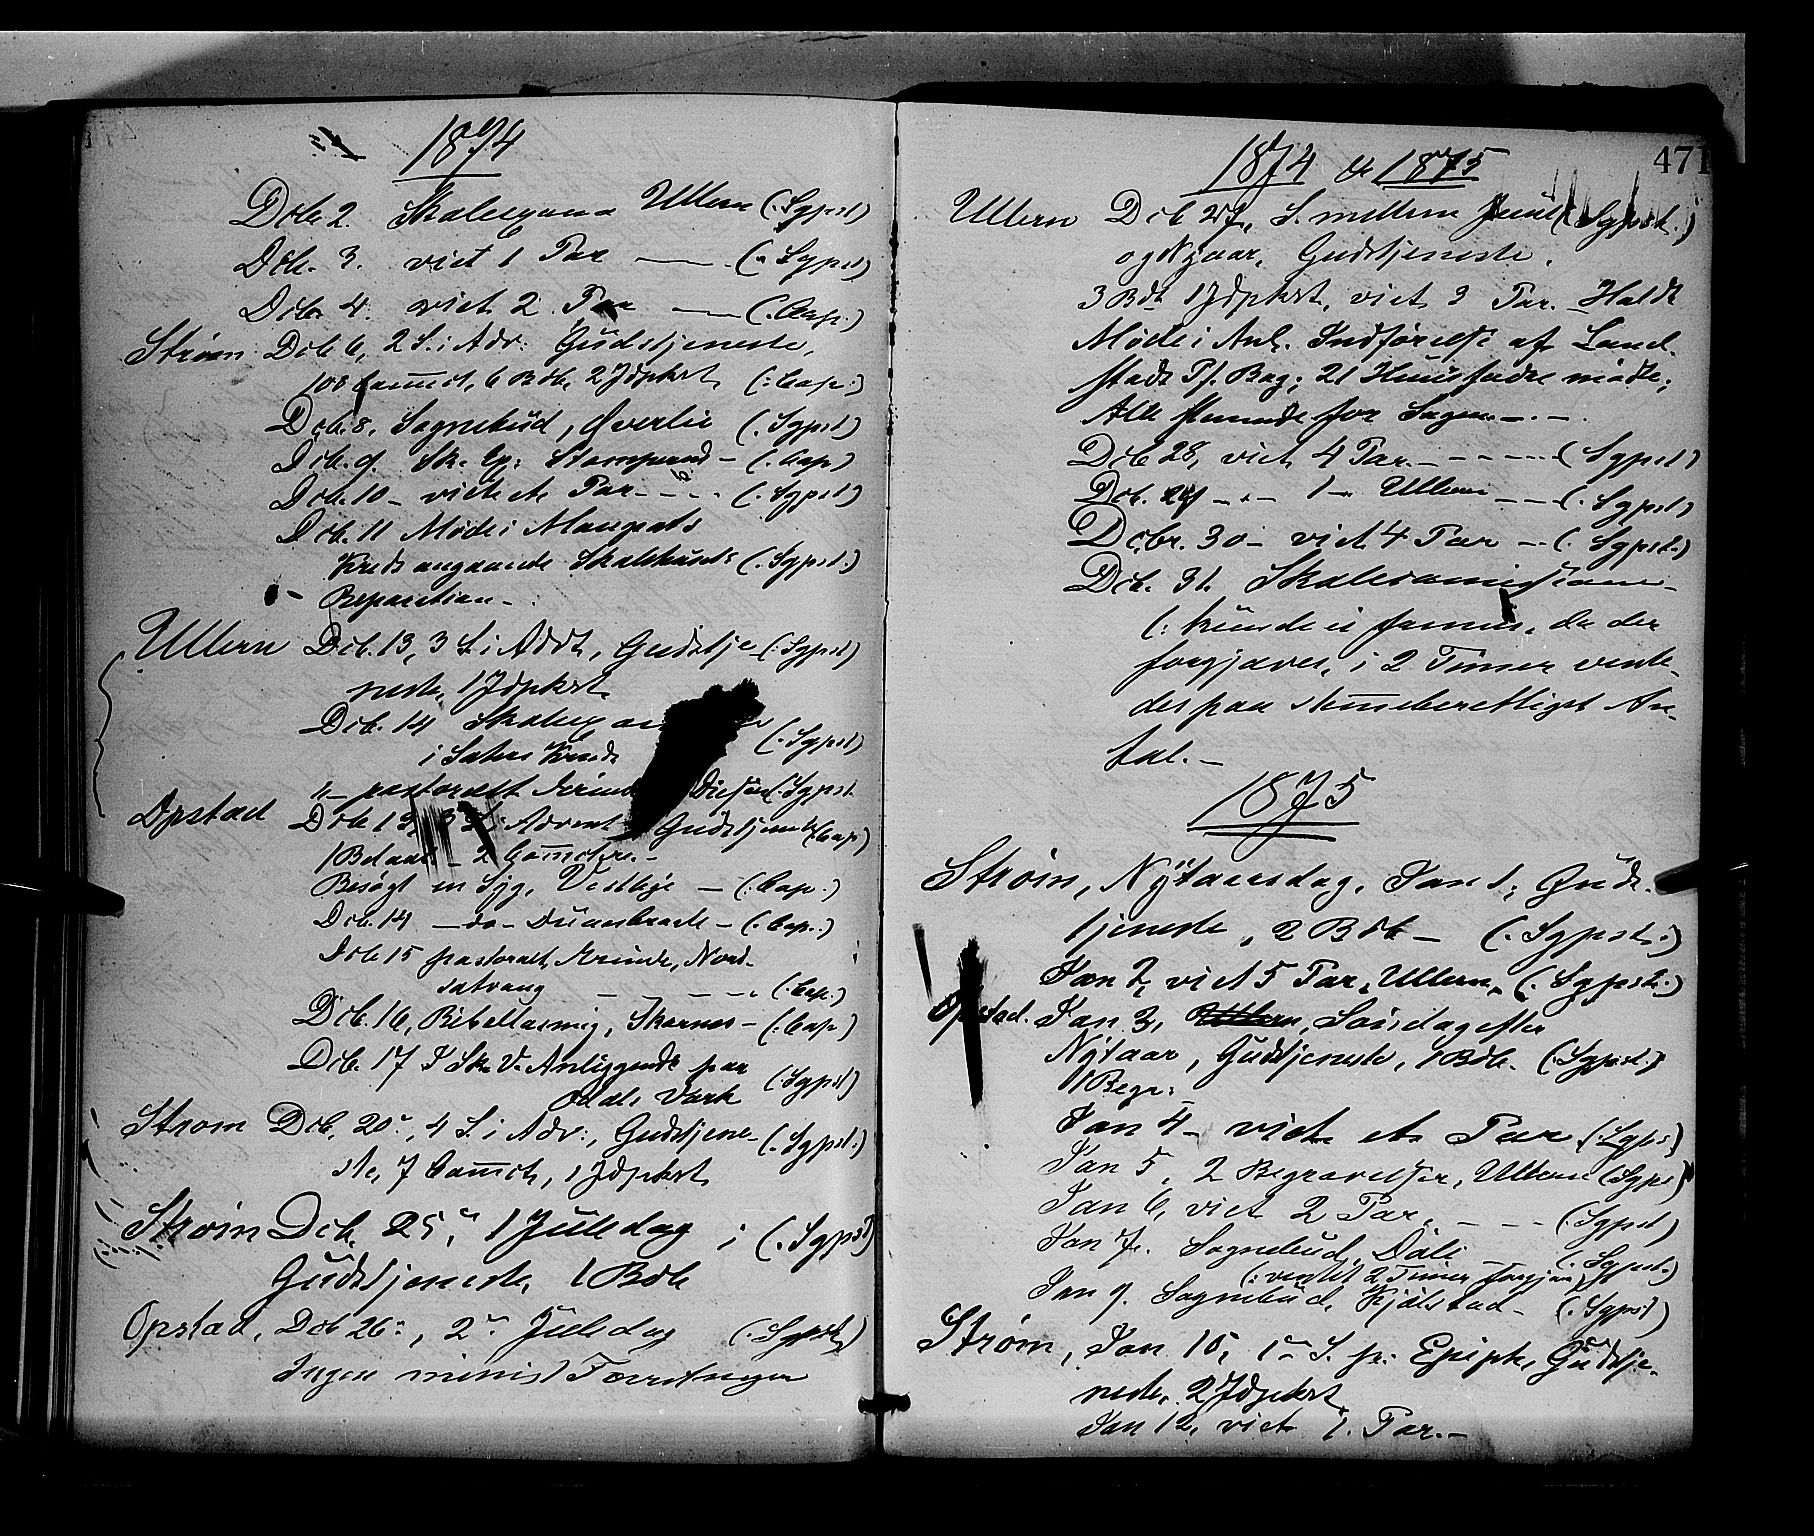 1874
Dcb. 2. Ullern (: Sgpst)
Dcb. 3. viet 1 Par — (: Sgpst)
Dcb. 4. viet 2 Par — (: Cap.)
Strøm Dcb 6, 2 S. i Adv: Gudstjeneste,
108 Comct, 6 Bdb, 2 Jdpkst (: Cap:)
Dcb. 8, Sognebud, Øverlie (: Sgpst)
Dcb. 9. Sk. Ex: – (: Cap)
Dcb. 10 – viet et Par - - - (: Sgpst)
Dcb. 11 Møde i
Kreds angaaende Skolehusets (: Sgpst:)
Reparation –
Ullern Dcb. 13, 3 S. i Advt, Gudstje- (: Sgpst)
neste, 1 Jdpkst
Dcb. 14 (: Sgpst)
i Kreds
"– pastoralt Ærinde (: Sgpst
Opstad Dcb 13, 3 S. i Advent Gudstjeneste (: Cap)
– 2
Besøgt en Syg, Vestbye – (: Cap:)
Dcb. 14 – do – – (: Cap.)
Dcb 15 pastoralt Ærinde, Nord-
satrang – – – – (: Cap.)
Dcb. 16, Bibellæsning, Skarnes – (: Cap)
Dcb. 17 I Sk. V. Anliggende paa (: Sgpst)
Odals Værk
Strøm Dcb. 20de, 4 S. i Adv:, Gudstjene- (: Sgpst:)
ste, 7 Comct, 1 Jdpkst
Strøm Dcb. 25de, 1 Juledag (: Sgpst)
Gudstjeneste, 1 Bdb
Opstad, Dcb 26de, 2den Juledag (: Sgpst)
Ingen minist Forretninger
1874 & 1875
471
Ullern Dcb 27, S. mellem Juul (: Sgpst.)
og Nyaar, Gudstjeneste.
3 Bdb 1 Jdpkst, viet 3 Par. Holdt
Møde i Anl. Indførelse af Land-
stads Ps. Bog; 21 Huusfædre mødte;
Alle stemmede for Sagen – . –
Dcb 28, viet 4 Par. – – – (: Sgpst)
Dcb. 29 – " – 1 – Ullern – – (: Sgpst)
Dcbr. 30 – viet 4 Par – (: Sgpst.)
Dcb. 31. Skolecomission
(: kunde ei , da der
forgjæves, i 2 Timer vente-
des paa stemmeberettiget An-
tal. –
1875
Strøm, Nytaarsdag, Jan 1, Guds-
tjeneste, 2 Bdb – (: Sgpst:)
Jan 2, viet 5 Par, Ullern, (: Sgpst.)
Opstad. Jan 3, Ullern, Søndag efter
Nytaar, Gudstjeneste, 1 Bdb. (: Sgpst.)
1 Begr:
Jan 4 – viet et Par (: Sgps)
Jan 5, 2 Begravelser, Ullern (: Sgps)
Jan 6, viet 2 Par. – – – (: Sgpst)
Jan 7. Sognebud, Døli – (: Sgpst.)
(: ventet 2 Timer forgjæv)
Jan 9. Sognebud, Kjølstad – (: Sgpst)
Strøm, Jan 10, 1ste S. p. Epiph, Gudstje-
neste, 2 Jdpkst
Jan 12, viet 1. Par. –